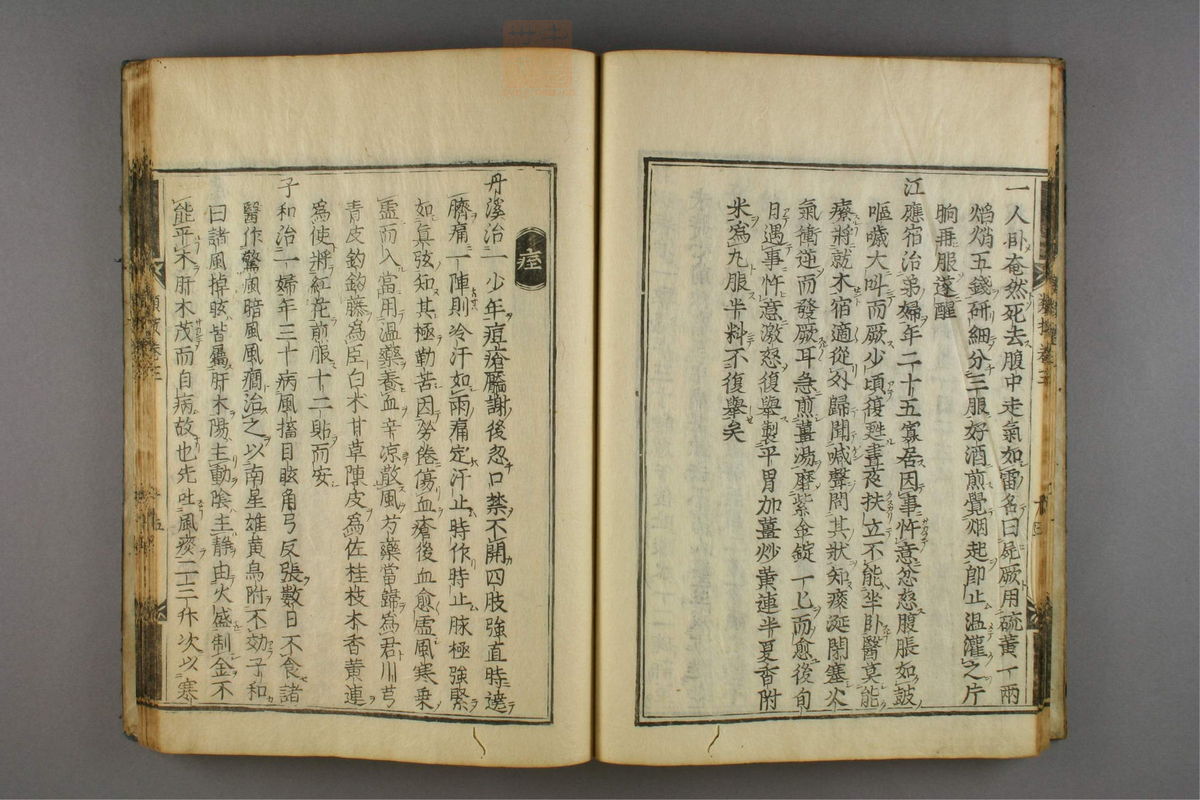 一人卧奄然死去腹中走氣如雷名曰屍厥用硫黄一兩
焰焇五錢研細分三服好酒煎覺烟起即止温灌之片
晌再服遂醒
江應宿治弟婦年二十五寡居因事忤意忿怒腹脹如鼓
嘔噦大叫而厥少頃復甦晝夜扶立不能坐卧醫莫能
療將就木宿適從外歸聞喊聲問其狀知痰涎閉塞火
氣衝逆而發厥耳急煎薑湯磨紫金錠一匕而愈後旬
日遇事忤意激怒復舉製平胃加薑炒黄連半夏香附
米為丸服半料不復舉矣
痙
丹溪治一少年痘瘡靨謝後忽口禁不開四肢強直時遶
臍痛一陣則冷汗如雨痛定汗止時作時止脉極強緊
如真弦知其極勤苦因勞倦傷血瘡後血愈虚風寒乗
虚而入當用温藥養血辛凉散風芍藥當歸為君川芎
青皮釣鈎藤為臣白术甘草陳皮為佐桂枝木香黄連
為使將紅花煎服十二貼而安
子和治一婦年三十病風搐目眩角弓反張數日不食諸
醫作驚風暗風風癇治之以南星雄黄烏附不効子和
曰諸風掉眩皆屬肝木陽主動陰主静由火盛制金不
能平木肝木茂而自病故也先吐風痰二三升次以寒